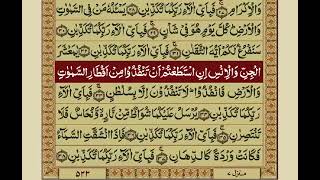 وَالْاِكْرَامِ ۝ فَبِاَيِّ اٰلَآءِ رَبِّكُمَا تُكَذِّبٰنِ ۝ يَسْـَٔلُهٗ مَنْ فِي السَّمٰوٰتِ
وَالْاَرْضِ كُلَّ يَوْمٍ هُوَ فِيْ شَاْنٍ ۝ فَبِاَيِّ اٰلَآءِ رَبِّكُمَا تُكَذِّبٰنِ ۝
سَنَفْرُغُ لَكُمْ اَيُّهَ الثَّقَلٰنِ ۝ فَبِاَيِّ اٰلَآءِ رَبِّكُمَا تُكَذِّبٰنِ ۝ يٰمَعْشَرَ
الْجِنِّ وَالْاِنْسِ اِنِ اسْتَطَعْتُمْ اَنْ تَنْفُذُوْا مِنْ اَقْطَارِ السَّمٰوٰتِ
وَالْاَرْضِ فَانْفُذُوْا لَا تَنْفُذُوْنَ اِلَّا بِسُلْطٰنٍ ۝ فَبِاَيِّ اٰلَآءِ
رَبِّكُمَا تُكَذِّبٰنِ ۝ يُرْسَلُ عَلَيْكُمَا شُوَاظٌ مِّنْ نَّارٍ وَّنُحَاسٌ فَلَا
تَنْتَصِرٰنِ ۝ فَبِاَيِّ اٰلَآءِ رَبِّكُمَا تُكَذِّبٰنِ ۝ فَاِذَا انْشَقَّتِ السَّمَآءُ
فَكَانَتْ وَرْدَةً كَالدِّهَانِ ۝ فَبِاَيِّ اٰلَآءِ رَبِّكُمَا تُكَذِّبٰنِ ۝
منزل ۷
۵۲۳